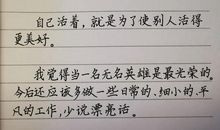 自己活着，就是为了使别人活得
更美好。
我觉得当一名无名英雄是最光荣的
今后还应该多做一些日常的、细小的、平
凡的工作，少说漂亮话。